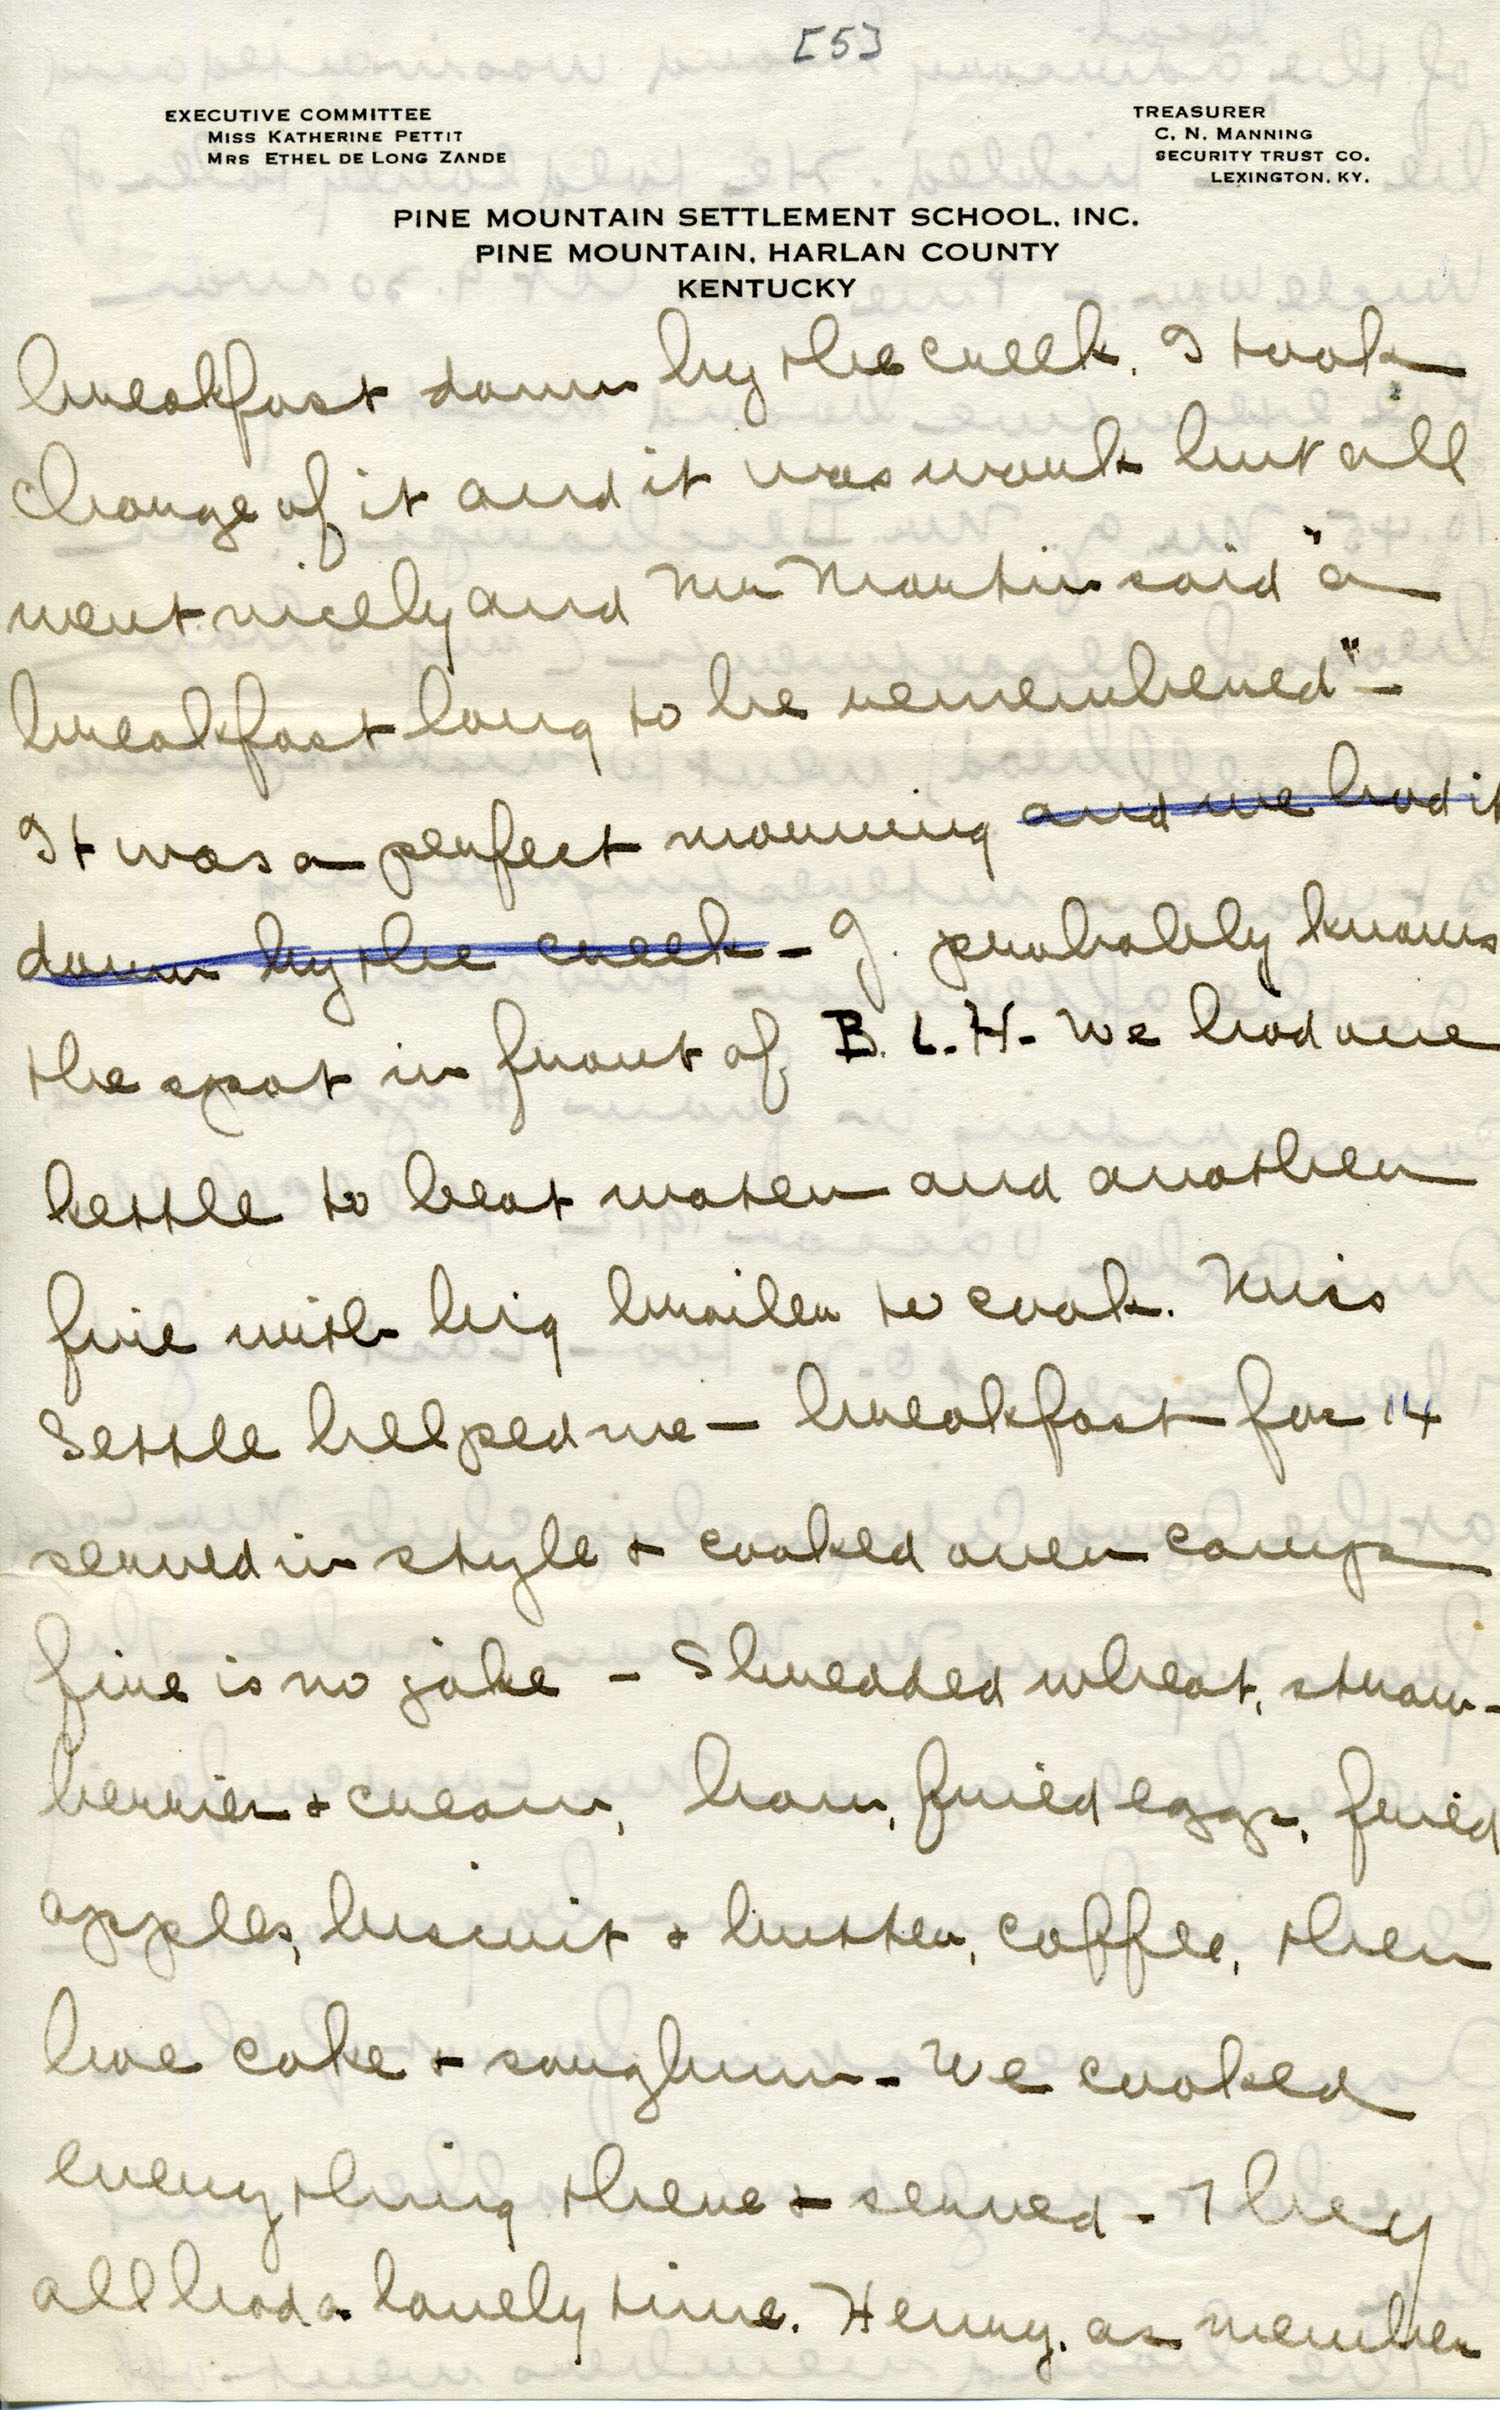 [5]
EXECUTIVE COMMITTEE
MISS KATHERINE PETTIT
MRS ETHEL DE LONG ZANDE
TREASURER
C. N. MANNING
SECURITY TRUST CO.
LEXINGTON, KY.
PINE MOUNTAIN SETTLEMENT SCHOOL, INC.
PINE MOUNTAIN, HARLAN COUNTY
KENTUCKY
breakfast down by the creek. I took
charge of it and it was work but all
went nicely and Mr Martin said "a
breakfast long to be remembered" -
It was a perfect morning and we had it
down by the creek - G. probably knows
the spot in front of B. L. H. We had one
kettle to heat water and another
fire with big broiler to cook. Miss
Settle helped me - breakfast for 14
served in style & cooked over camp
fire is no joke - Shredded wheat, straw-
berries & cream, ham, fried eggs, fried
apples, biscuit & butter, coffee, then
hoe cake & sorghum - We cooked
every thing there & served - They
all had a lovely time. Henry, as member